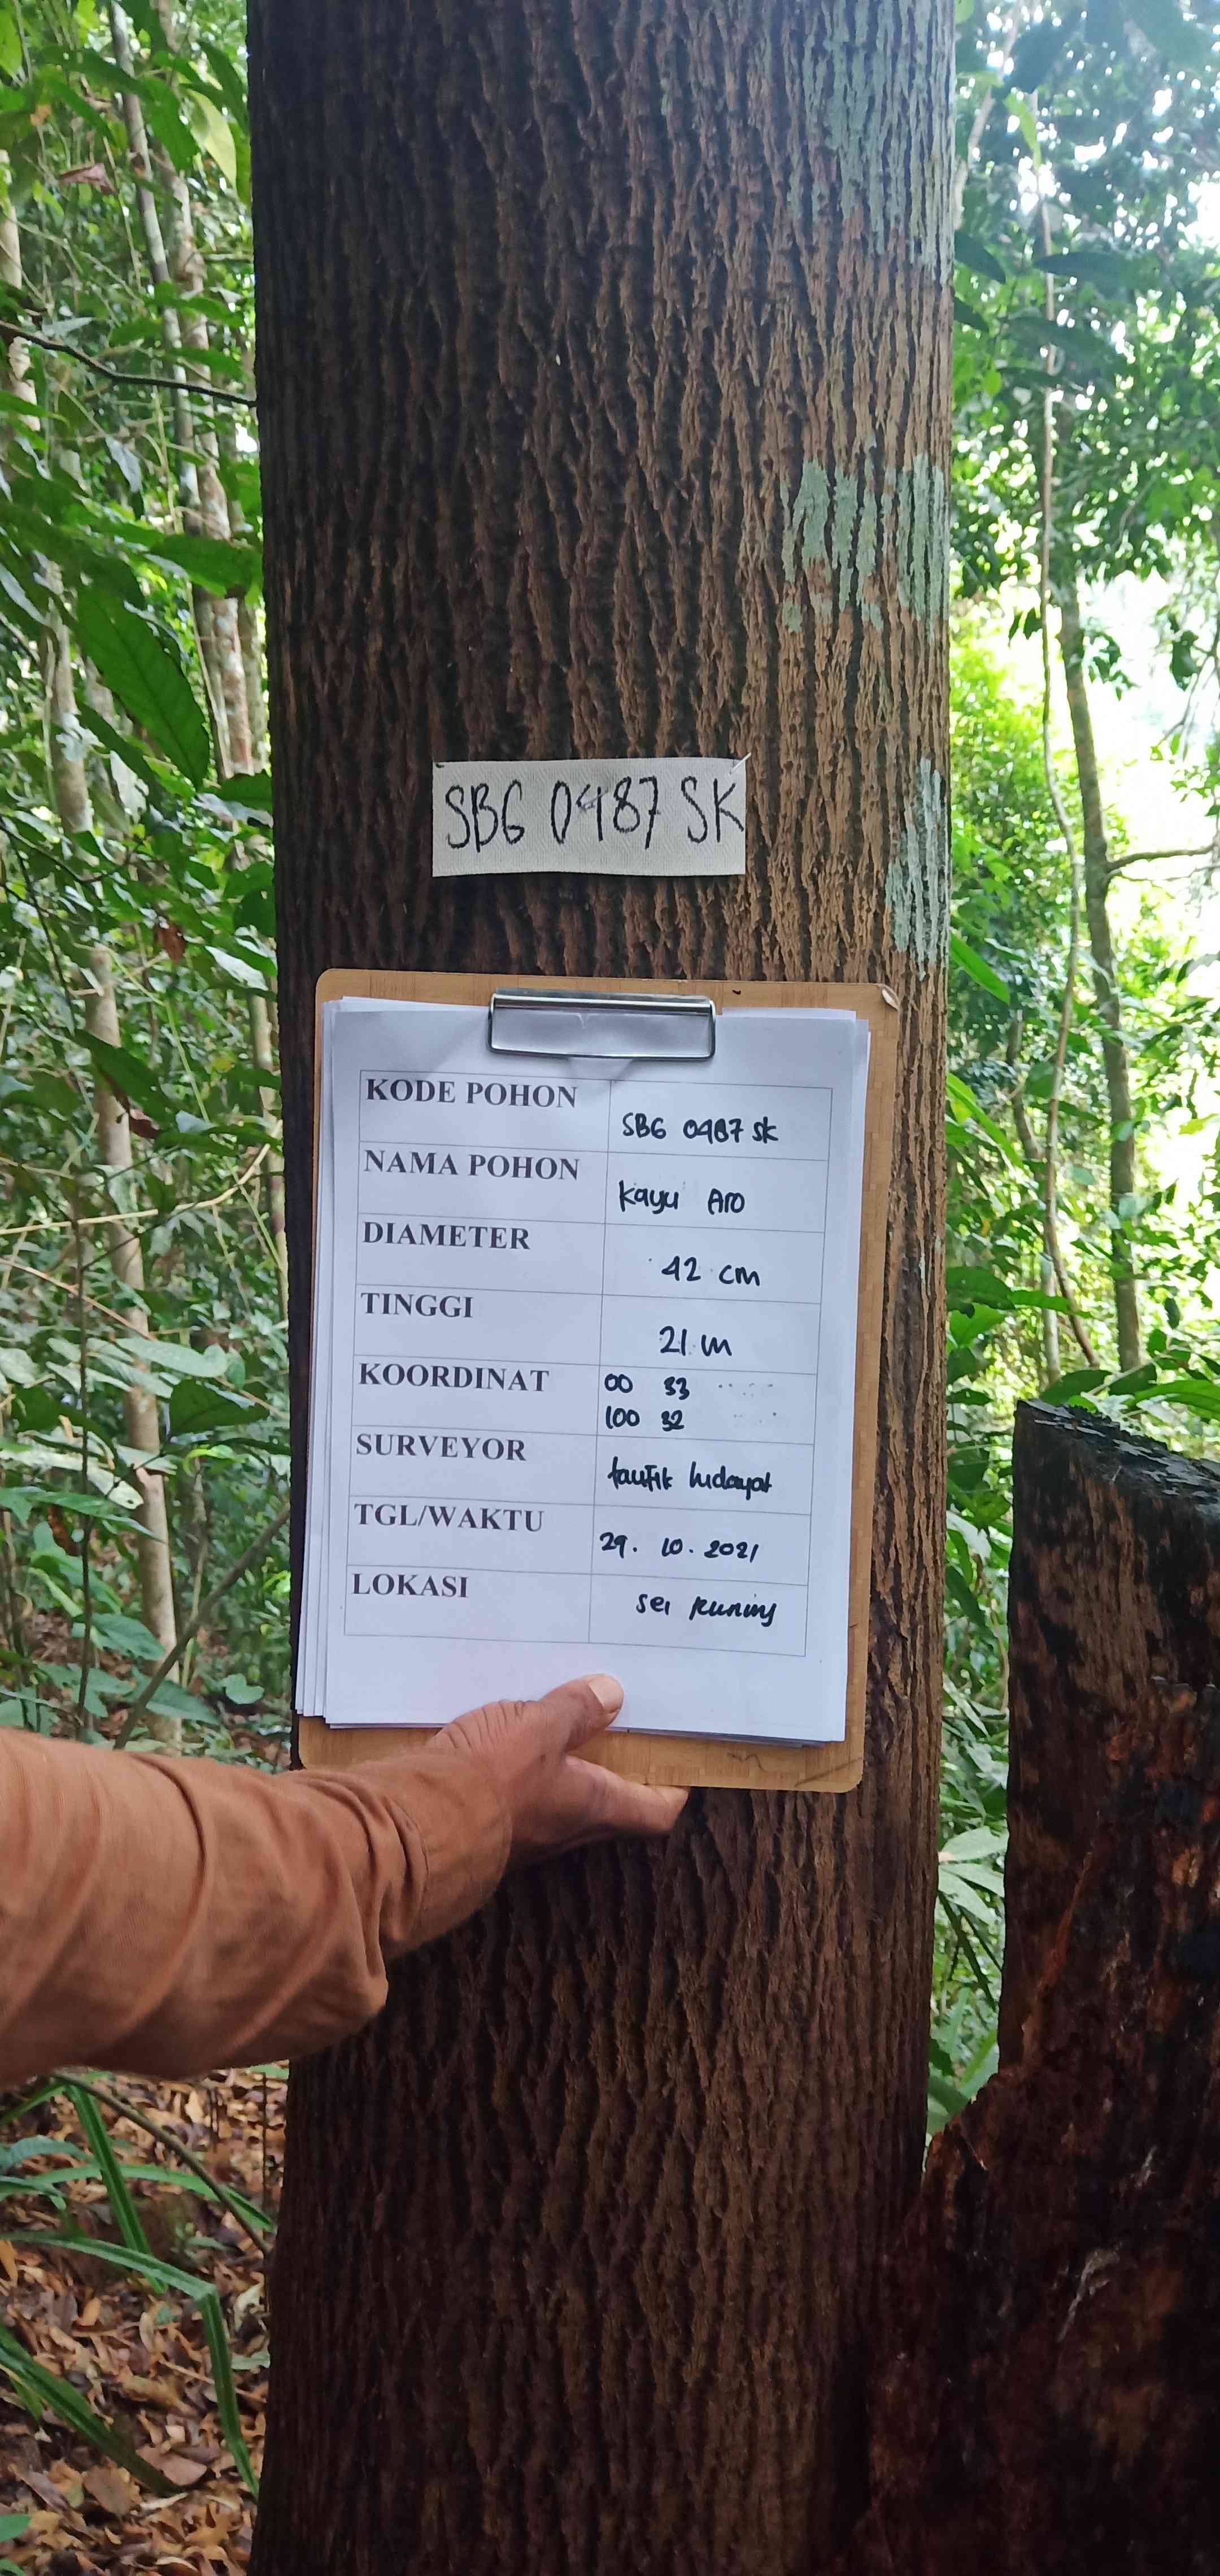 SBG 0487 SK
KODE POHON
SBG 0487 SK
NAMA POHON
Kayu Aro
DIAMETER
42 cm
TINGGI
21 m
KOORDINAT
00 33
100 32
SURVEYOR
taufik hidayat
TGL/WAKTU
29. 10. 2021
LOKASI
sei kuning